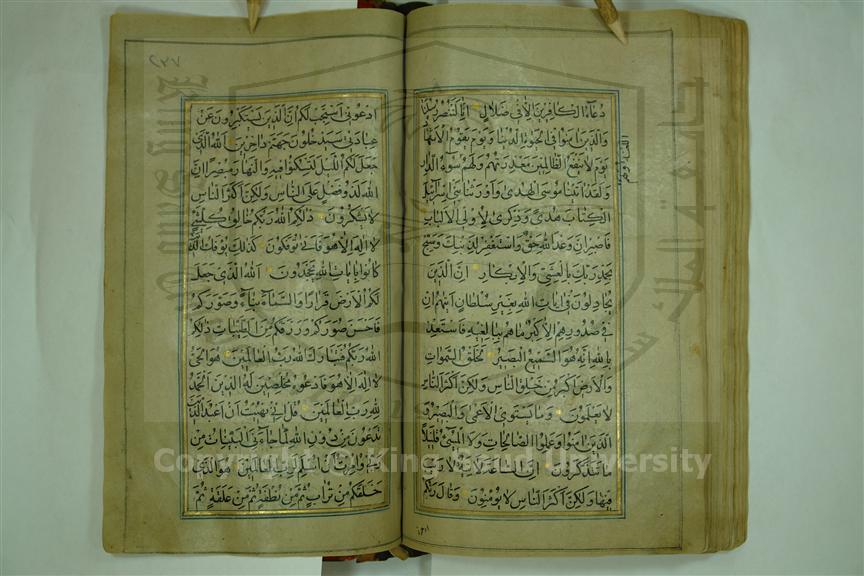 دعاء الكافرين الا في ضلال انا لننصر رسلنا
والذين امنوا في الحيوة الدنيا ويوم يقوم الاشهاد
يوم لا ينفع الظالمين معذرتهم ولهم سوء الدار
ولقد اتينا موسى الهدى واورثنا بني اسرائيل
الكتاب هدى وذكرى لاولي الالباب
فاصبر ان وعد الله حق واستغفر لذنبك وسبح
بحمد ربك بالعشي والابكار ان الذين
يجادلون في ايات الله بغير سلطان اتيهم ان
في صدورهم الا كبر ما هم ببالغيه فاستعذ
بالله انه هو السميع البصير لخلق السموات
والارض اكبر من خلق الناس ولكن اكثر الناس
لا يعلمون وما يستوي الاعمى والبصير و
الذين امنوا وعملوا الصالحات ولا المسيء قليلا
ما تتذكرون ان الساعة لاتية لا ريب
فيها ولكن اكثر الناس لا يؤمنون وقال ربكم
٢٣٧
ادعوني استجب لكم ان الذين يستكبرون عن
عبادتي سيدخلون جهنم داخرين الله الذي
جعل لكم الليل لتسكنوا فيه والنهار مبصرا ان
الله لذو فضل على الناس ولكن اكثر الناس
لا يشكرون ذلكم الله ربكم خالق كل شيء
لا اله الا هو فاني تؤفكون كذلك يؤفك الذين
كانوا بايات الله يجحدون الله الذي جعل
لكم الارض قرارا والسماء بناء وصوركم
فاحسن صوركم ورزقكم من الطيبات ذلكم
الله ربكم فتبارك الله رب العالمين هو الحي
لا اله الا هو فادعوه مخلصين له الدين الحمد
لله رب العالمين قل اني نهيت ان اعبد الذين
تدعون من دون الله لما جاءني البينات من
ربي وامرت ان اسلم لرب العالمين هو الذي
خلقكم من تراب ثم من نطفة ثم من علقة ثم
Copyright © King Saud University